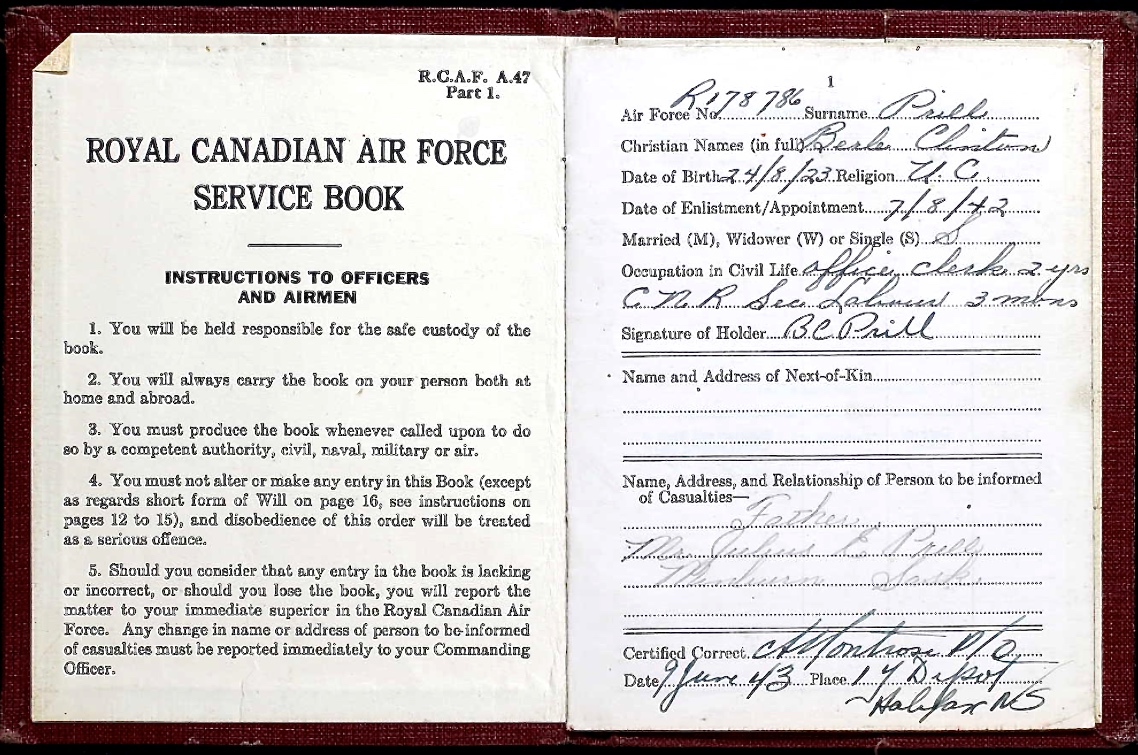 R.C.A.F. A.47
Part 1.
ROYAL CANADIAN AIR FORCE
SERVICE BOOK
INSTRUCTIONS TO OFFICERS
AND AIRMEN
1. You will be held responsible for the safe custody of the
book.
2. You will always carry the book on your person both at
home and abroad.
3. You must produce the book whenever called upon to do
so by a competent authority, civil, naval, military or air.
4. You must not alter or make any entry in this Book (except
as regards short form of Will on page 16, see instructions on
pages 12 to 15), and disobedience of this order will be treated
as a serious offence.
5. Should you consider that any entry in the book is lacking
or incorrect, or should you lose the book, you will report the
matter to your immediate superior in the Royal Canadian Air
Force. Any change in name or address of person to be informed
of casualties must be reported immediately to your Commanding
Officer.
1
Air Force No. R178786 Surname Prill
Christian Names (in full) Berle Clinton
Date of Birth 24/8/23 Religion U.C.
Date of Enlistment/Appointment 7/8/42
Married (M), Widower (W) or Single (S) S
Occupation in Civil Life office clerk 2 yrs
C N R Sec Labour 3 mons
Signature of Holder BC Prill
Name and Address of Next-of-Kin
Name, Address, and Relationship of Person to be informed
of Casualties—
Father
Mr. Julius E. Prill
Sask.
Certified Correct F/O
Date 9 June 43 Place 1 Y Depot
Halifax NS